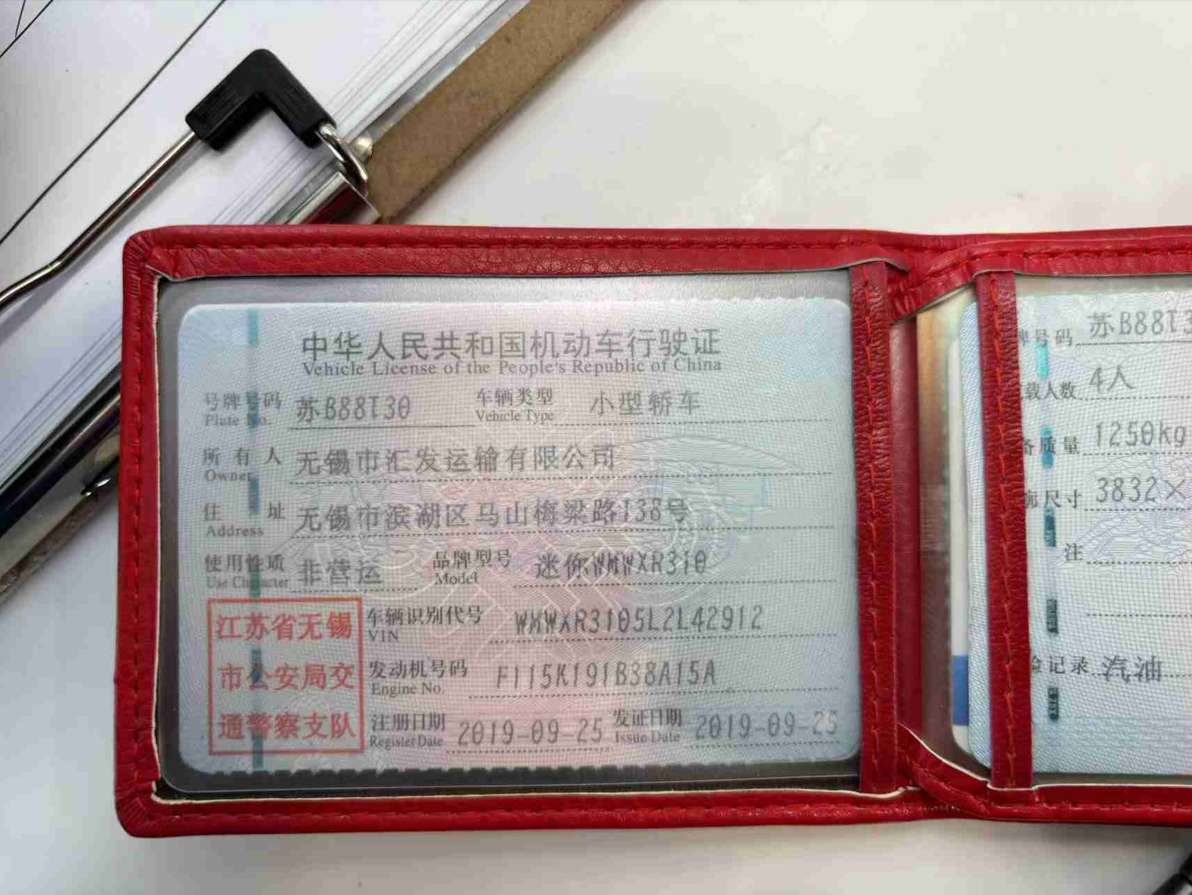 中华人民共和国机动车行驶证
Vehicle License of the People's Republic of China
号牌号码 苏B88T30 车辆类型 小型轿车
Plate No. Vehicle Type
所有人 无锡市汇发运输有限公司
Owner
住址 无锡市滨湖区马山梅梁路138号
Address
使用性质 非营运 品牌型号 迷你WMWXR310
Use Character Model
江苏省无锡
市公安局交
通警察支队
车辆识别代号 WMWXR3105L2L42912
VIN
发动机号码 F115K191B38A15A
Engine No.
注册日期 2019-09-25 发证日期 2019-09-25
Register Date Issue Date
牌号码 苏B88T3
载人数 4人
备质量 1250kg
廓尺寸 3832×
注
验记录 汽油